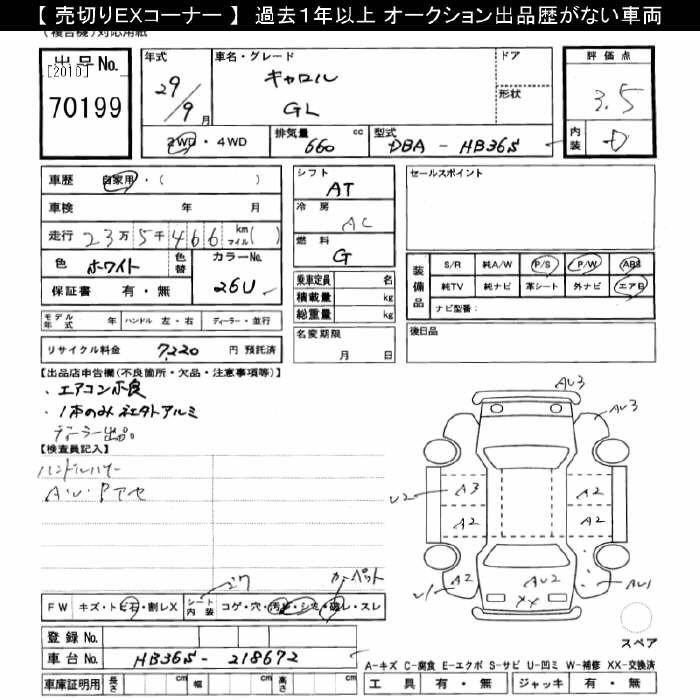 【 売切りEXコーナー 】 過去１年以上 オークション出品歴がない車両
(複合機)対応用紙
出品No.
[2010]
70199
年式
29/9月
車名・グレード
キャロル
GL
ドア
形状
評価点
3.5
内装
D
2WD・4WD
排気量 660 cc
型式 DBA - HB36S
車歴 自家用・( )
車検 年 月
走行 23万5千466 km マイル( )
色 ホワイト 色替 カラーNo. 26U
保証書 有・無
モデル年式 年 ハンドル 左・右 ディーラー・並行
リサイクル料金 7,220 円 預託済
シフト
AT
冷房
AC
燃料
G
乗車定員 名
積載量 kg
総重量 kg
名変期限
月 日
セールスポイント
装備品
S/R 純A/W P/S P/W ABS
純TV 純ナビ 革シート 外ナビ エアB
ナビ型番:
後日品
【出品店申告欄(不良箇所・欠品・注意事項等)】
・エアコン不良
・1本のみ社外アルミ
ディーラー出品。
【検査員記入】
A3
AU3
AU3
U2
A3
A2
A2
A2
U1
A2
AU2
AU1
XX
カーペット
FW キズ・トビ石・割レX
シート内装 コゲ・穴・汚レ・シミ・破レ・スレ
登録No.
車台No. HB36S-218672
車庫証明用 長さ cm 幅 cm 高さ cm
スペア
A-キズ C-腐食 E-エクボ S-サビ U-凹ミ W-補修 XX-交換済
工具 有・無 ジャッキ 有・無